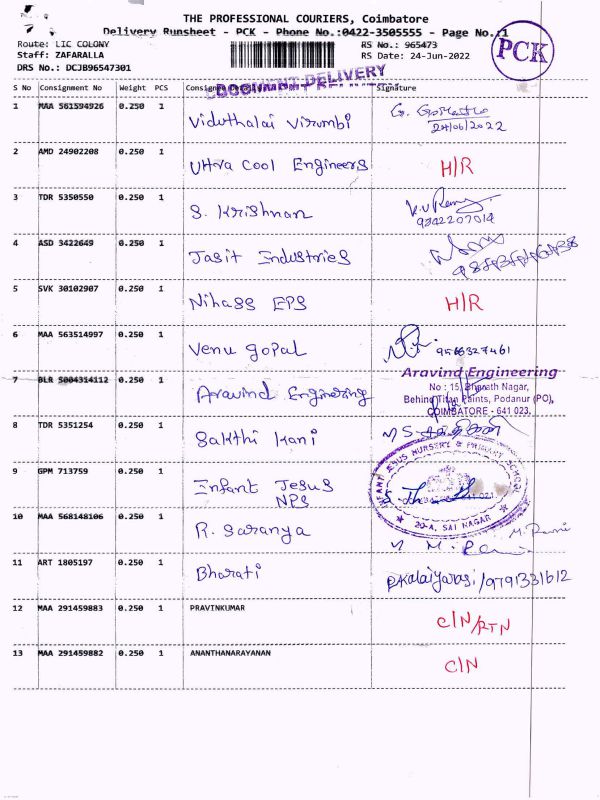 THE PROFESSIONAL COURIERS, Coimbatore
Delivery Runsheet - PCK - Phone No.:0422-3505555 - Page No.:1
Route: LIC COLONY
Staff: ZAFARALLA
DRS No.: DCJB96547301
RS No.: 965473
RS Date: 24-Jun-2022
PCK
DOCUMENT DELIVERY
S No Consignment No Weight PCS Consignee Signature
1 MAA 561594926 0.250 1 Viduthalai Virumbi
24/06/2022
2 AMD 24902208 0.250 1 Uttra Cool Engineers H/R
3 TDR 5350550 0.250 1 S. Krishnan
9342207014
4 ASD 3422649 0.250 1 Jasit Industries
5 SVK 30102907 0.250 1 Nihass EPS H/R
6 MAA 563514997 0.250 1 Venu Gopal 9566327461
7 BLR 5004314112 0.250 1 Aravind Enginering
Aravind Engineering
No : 15, Bharath Nagar,
Behind Titan Paints, Podanur (PO),
COIMBATORE - 641 023.
8 TDR 5351254 0.250 1 Sakthi Kani
9 GPM 713759 0.250 1 Infant Jesus
NPS
INFANT JESUS NURSERY & PRIMARY SCHOOL
20-A, SAI NAGAR
10 MAA 568148106 0.250 1 R. Saranya
11 ART 1805197 0.250 1 Bharati P.Kalaiyarasi/9791331612
12 MAA 291459883 0.250 1 PRAVINKUMAR C/N/RTN
13 MAA 291459882 0.250 1 ANANTHANARAYANAN C/N